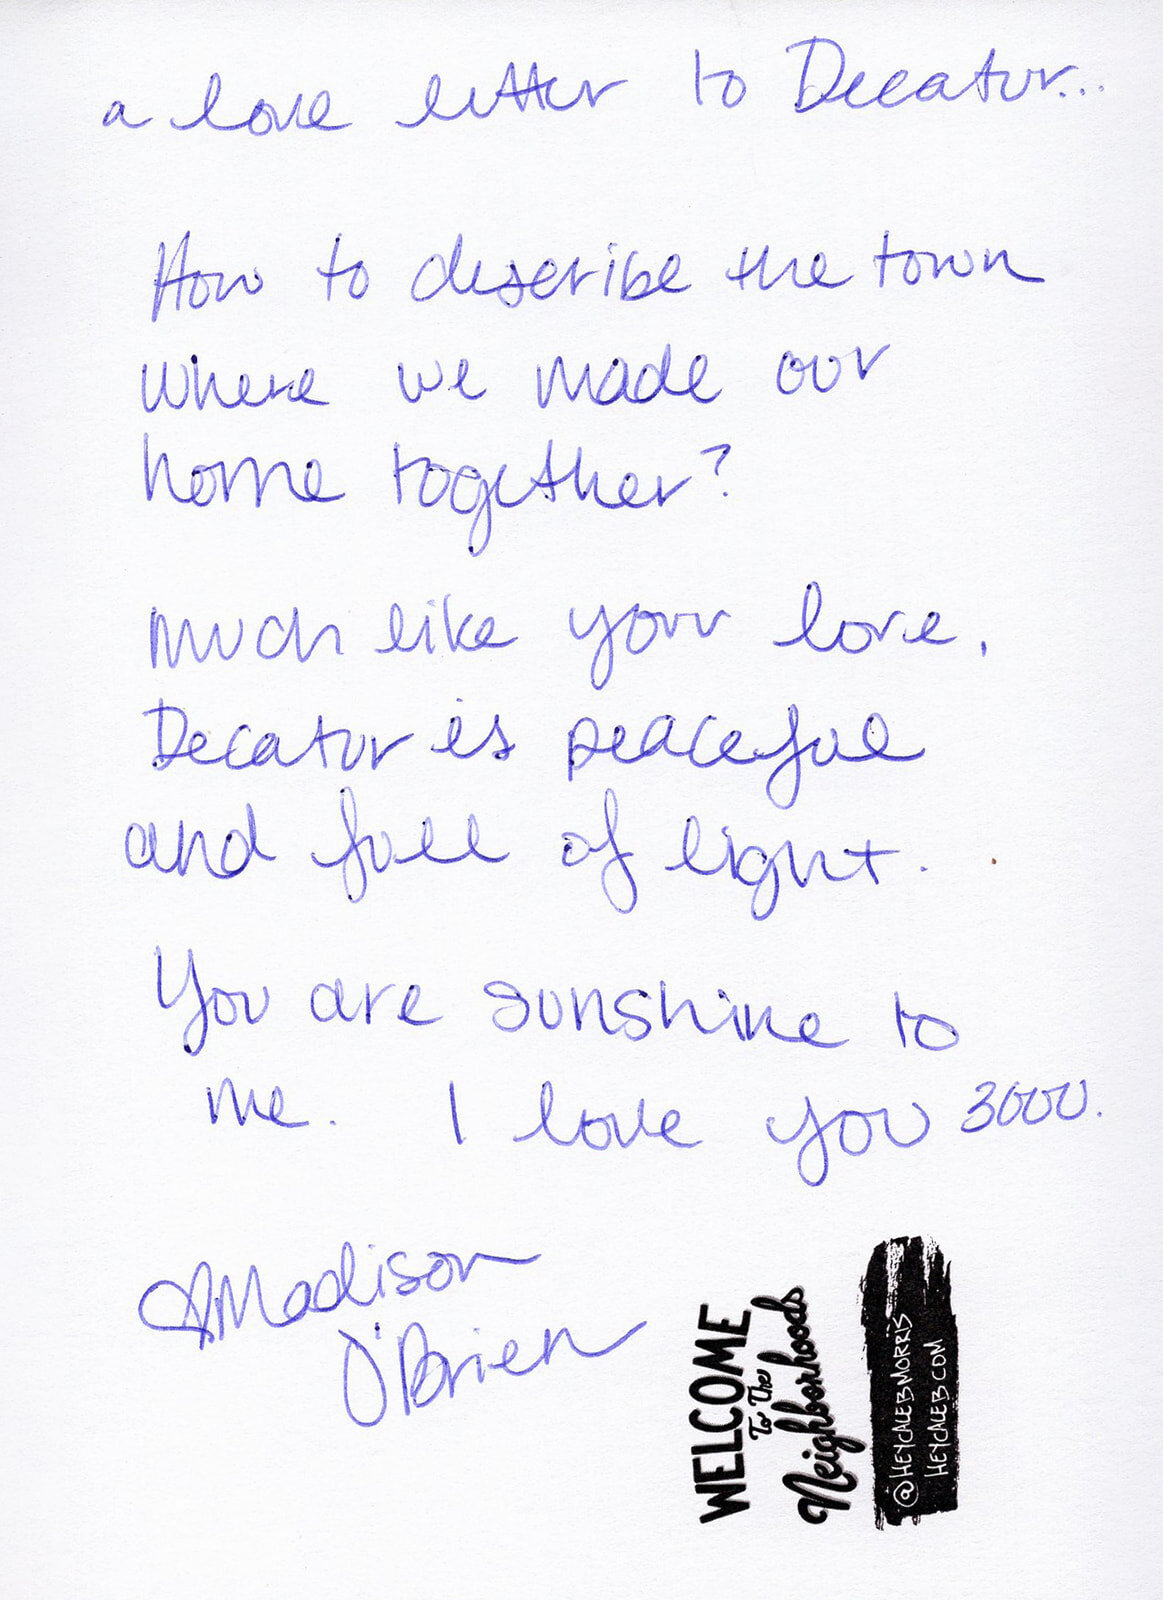 a love letter to Decatur...
How to describe the town
where we made our
home together?
Much like your love,
Decatur is peaceful
and full of light.
You are sunshine to
me. I love you 3000.
Madison
O'Brien
WELCOME
To The
Neighborhoods
@HEYCALEBMORRIS
HEYCALEB.COM